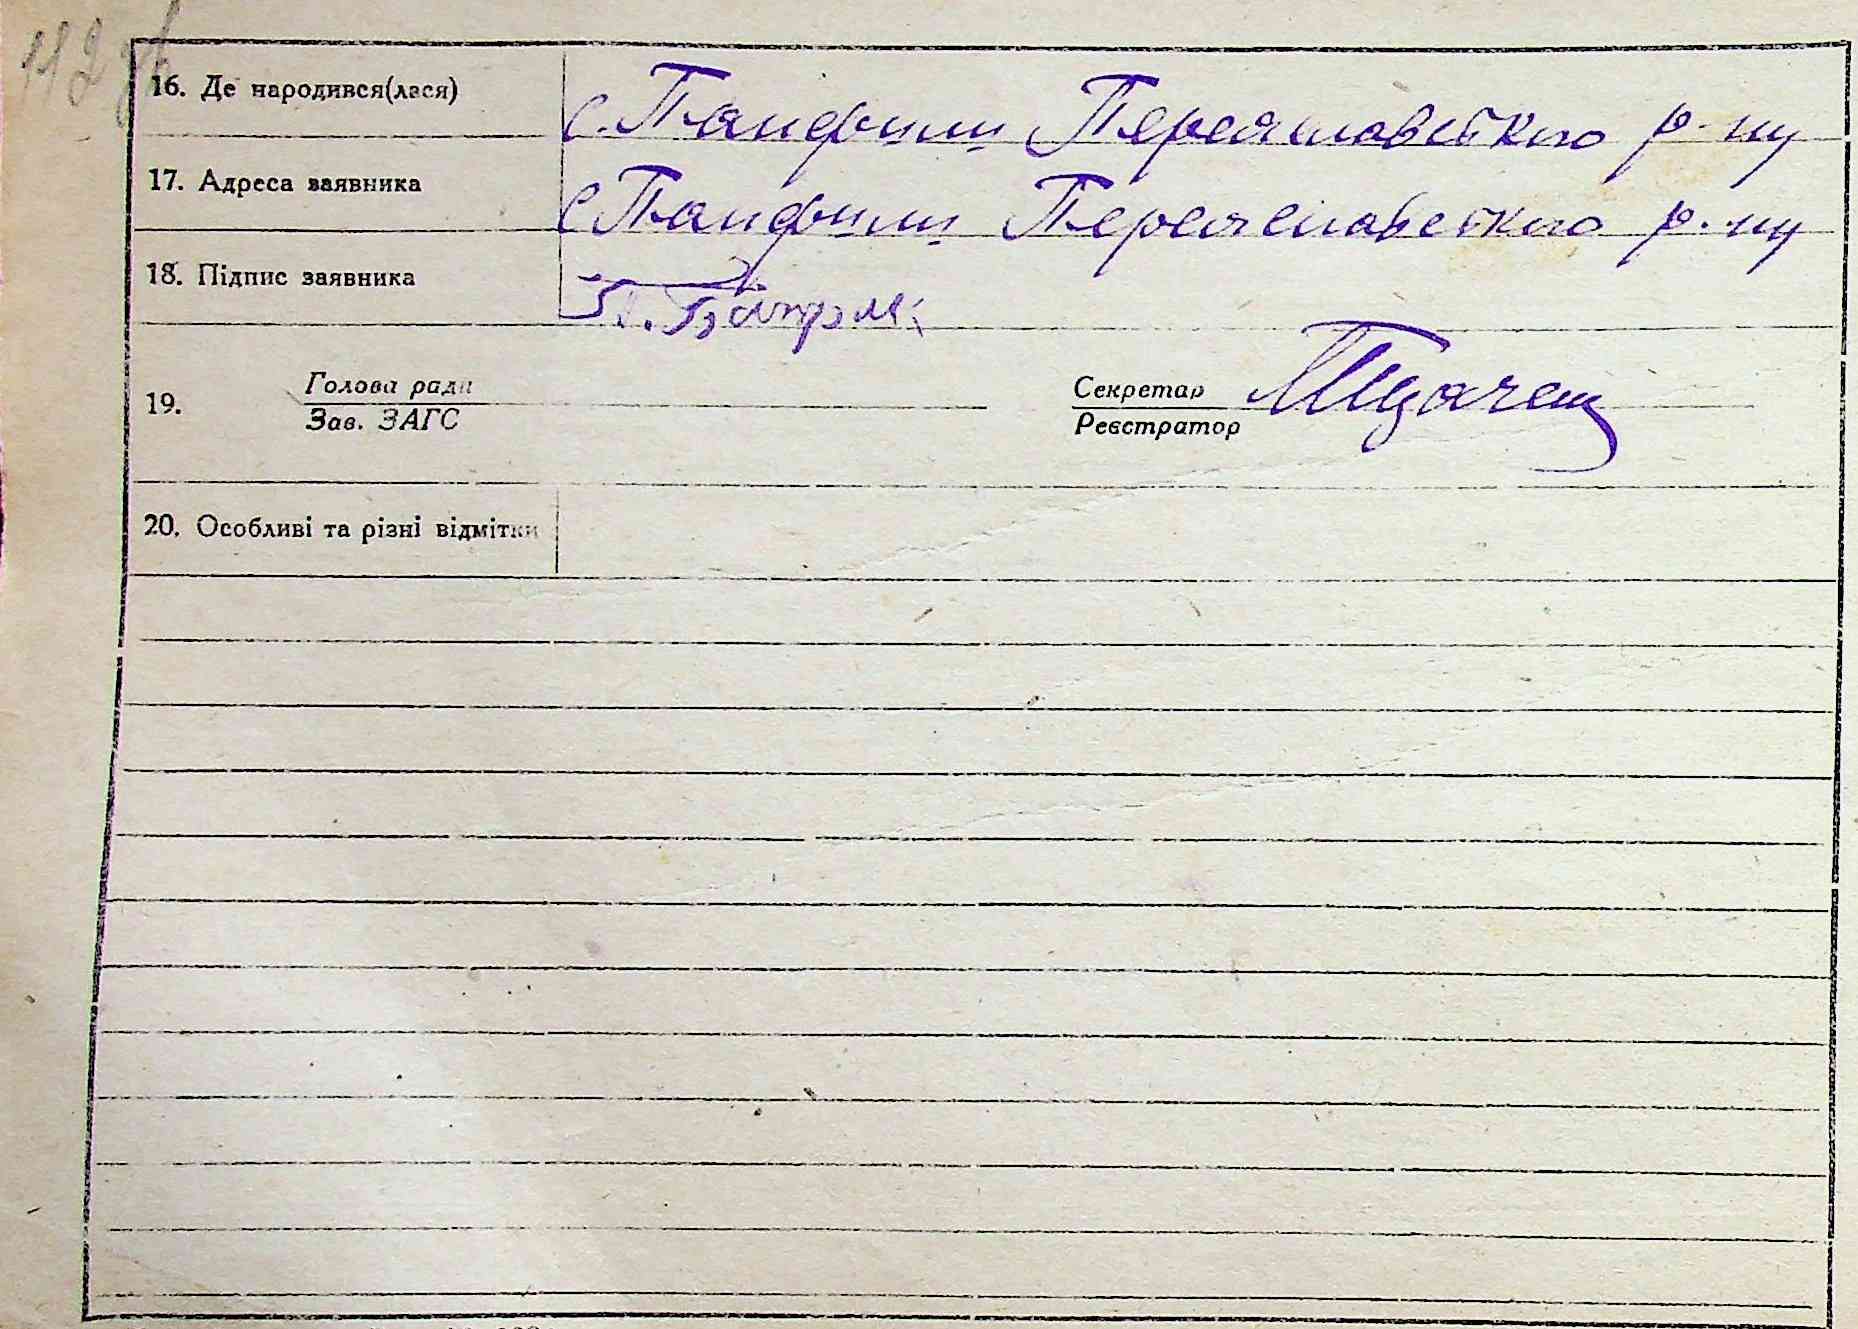 112 зв
16. Де народився(лася) с. Панфили Переяславського р-ну
17. Адреса заявника с Панфили Переяславського р-ну
18. Підпис заявника
19. Голова ради Секретар
Зав. ЗАГС Реєстратор
20. Особливі та різні відмітки